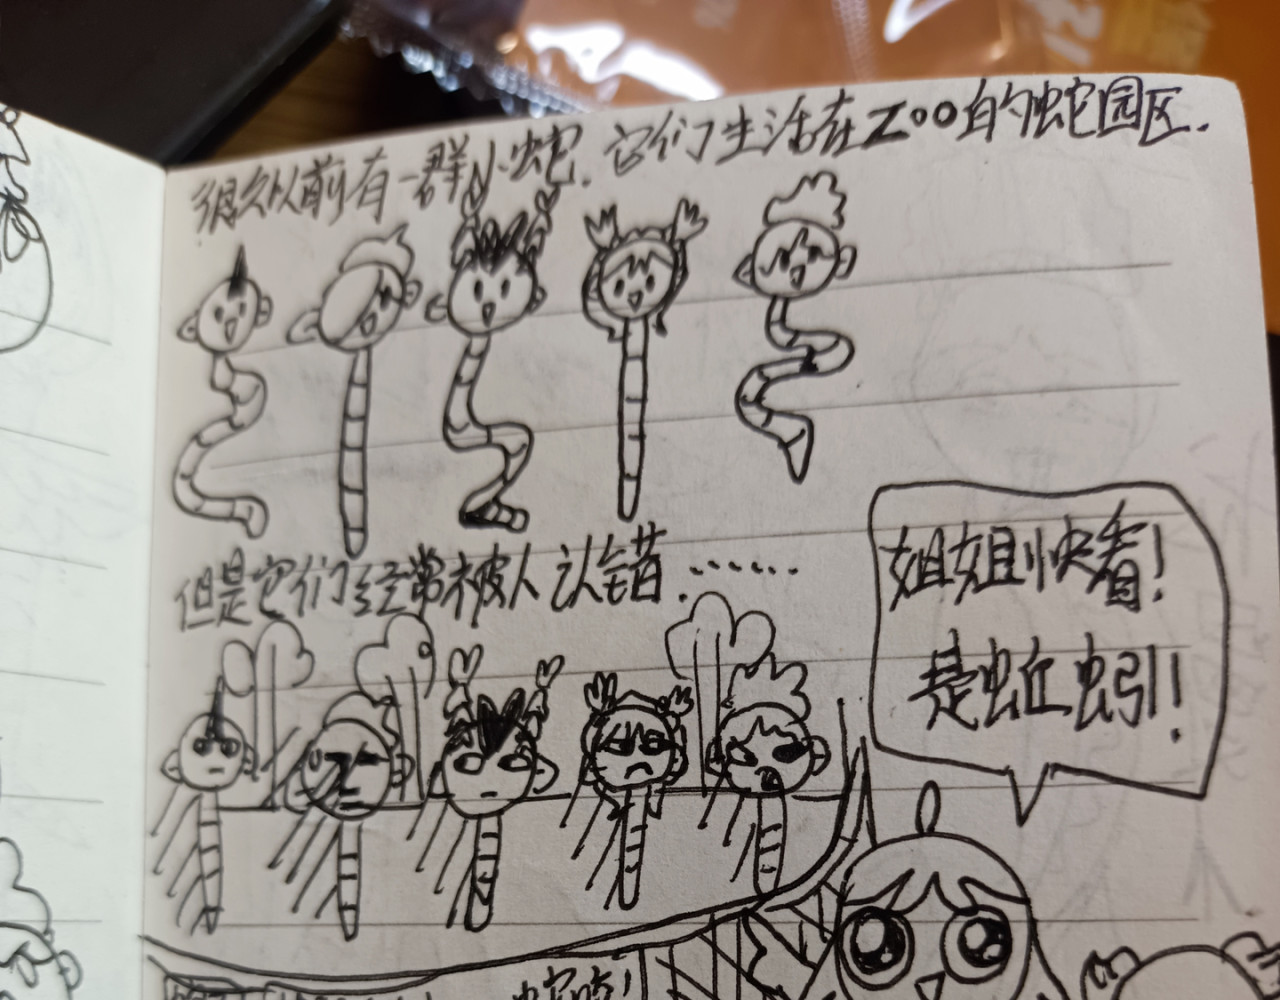 很久以前有一群小蛇.它们生活在Zoo的蛇园区.
但是它们经常被人认错.……
姐姐快看!
是蚯蚓!!